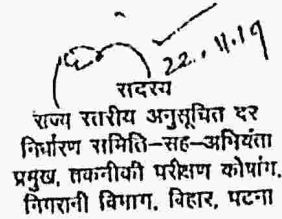 22.11.19
सदस्य
राज्य स्तरीय अनुसूचित दर
निर्धारण समिति-सह-अभियंता
प्रमुख, तकनीकी परीक्षण कोषांग,
निगरानी विभाग, बिहार, पटना